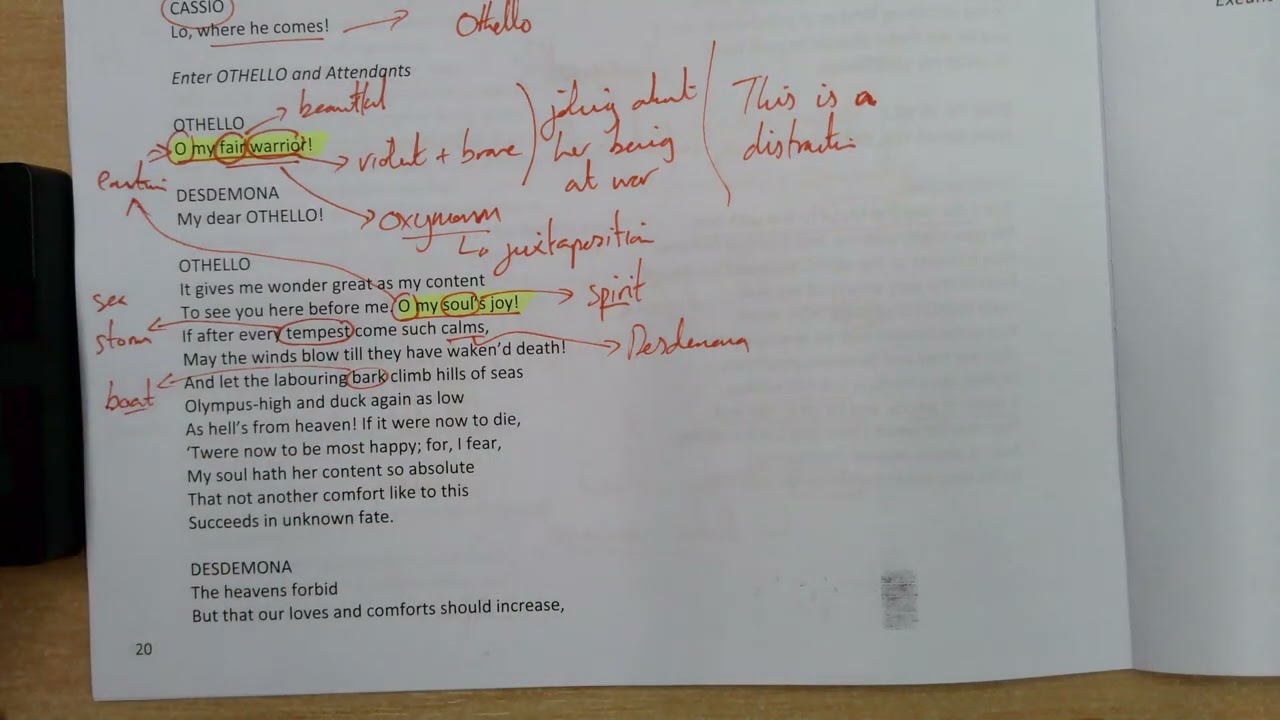 CASSIO
Lo, where he comes!
Othello
Enter OTHELLO and Attendants
beautiful
OTHELLO
O my fair warrior!
violent + brave
joking about
her being
at war
This is a
distraction
DESDEMONA
My dear OTHELLO!
oxymoron
juxtaposition
OTHELLO
It gives me wonder great as my content
To see you here before me. O my soul's joy!
spirit
sea
storm
If after every tempest come such calms,
Desdemona
May the winds blow till they have waken'd death!
boat
And let the labouring bark climb hills of seas
Olympus-high and duck again as low
As hell's from heaven! If it were now to die,
'Twere now to be most happy; for, I fear,
My soul hath her content so absolute
That not another comfort like to this
Succeeds in unknown fate.
DESDEMONA
The heavens forbid
But that our loves and comforts should increase,
20